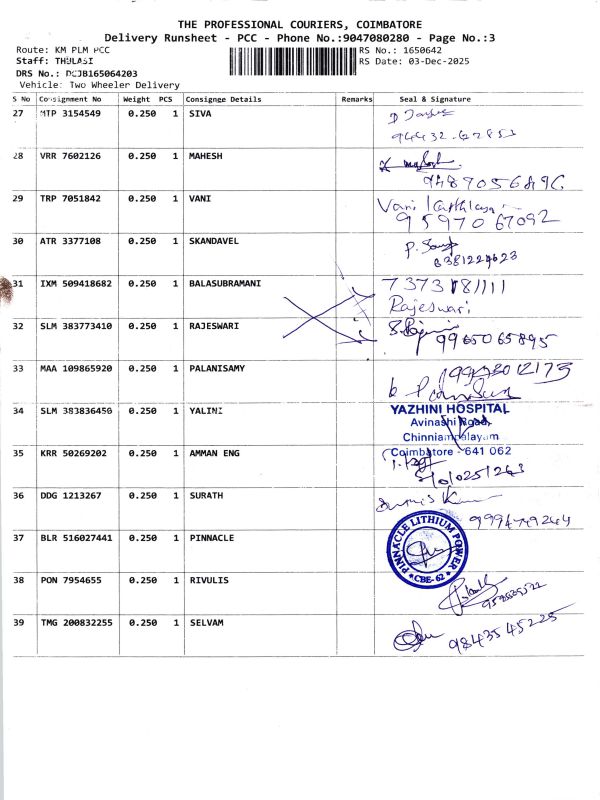 THE PROFESSIONAL COURIERS, COIMBATORE
Delivery Runsheet - PCC - Phone No.:9047080280 - Page No.:3
Route: KM PLM PCC
RS No.: 1650642
Staff: THULASI
RS Date: 03-Dec-2025
DRS No.: DCJB165064203
Vehicle: Two Wheeler Delivery
S No Consignment No Weight PCS Consignge Details Remarks Seal & Signature
27 MTP 3154549 0.250 1 SIVA
28 VRR 7602126 0.250 1 MAHESH
29 TRP 7051842 0.250 1 VANI Vani
95970 67092
30 ATR 3377108 0.250 1 SKANDAVEL
31 IXM 509418682 0.250 1 BALASUBRAMANI
Rajeswari
32 SLM 383773410 0.250 1 RAJESWARI
9965065895
33 MAA 109865920 0.250 1 PALANISAMY
34 SLM 383836450 0.250 1 YALINI YAZHINI HOSPITAL
Avinashi Road,
Chinniampalayam
Coimbatore - 641 062
35 KRR 50269202 0.250 1 AMMAN ENG
36 DDG 1213267 0.250 1 SURATH
37 BLR 516027441 0.250 1 PINNACLE PINNACLE LITHIUM POWER
*CBE-62*
38 PON 7954655 0.250 1 RIVULIS
39 TMG 200832255 0.250 1 SELVAM 98435 45225